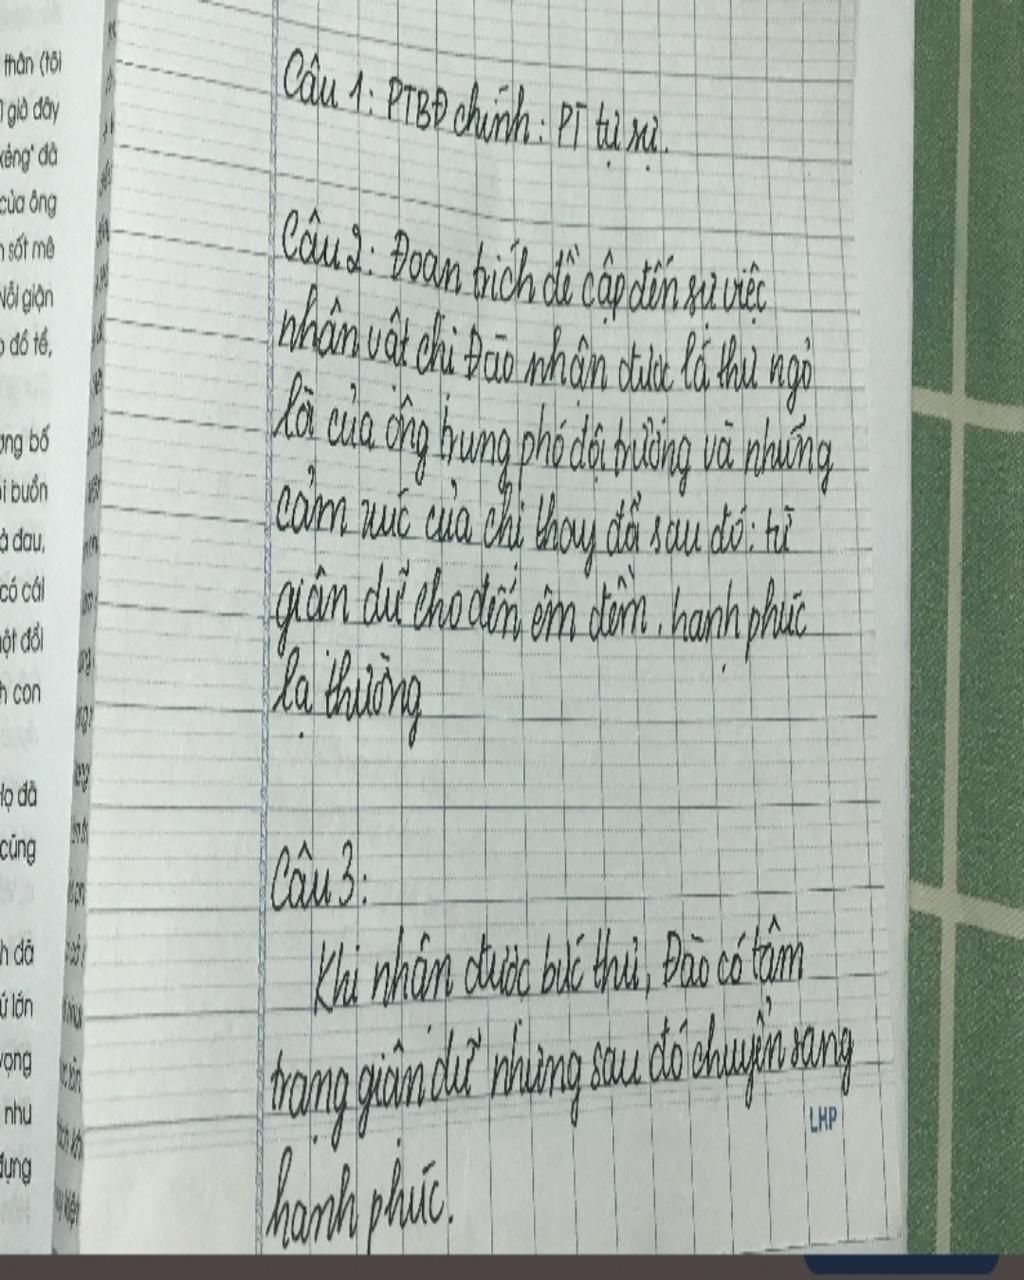 thân (tôi
giờ đây
của ông
sốt mê
Nỗi giận
đồ tể,
ông bố
buồn
đau,
có cái
một đổi
con
Họ đã
cũng
đã
lớn
vọng
như
đụng
Câu 1: PTBĐ chính: PT tự sự.
Câu 2: Đoạn trích đề cập đến sự việc
nhân vật chị Đào nhận được lá thư ngỏ
lời của ông trung phó đội trưởng và những
cảm xúc của chị thay đổi sau đó: từ
giận dữ cho đến êm đềm, hạnh phúc
lạ thường
Câu 3:
Khi nhận được bức thư, Đào có tâm
trạng giận dữ nhưng sau đó chuyển sang
hạnh phúc.
LHP